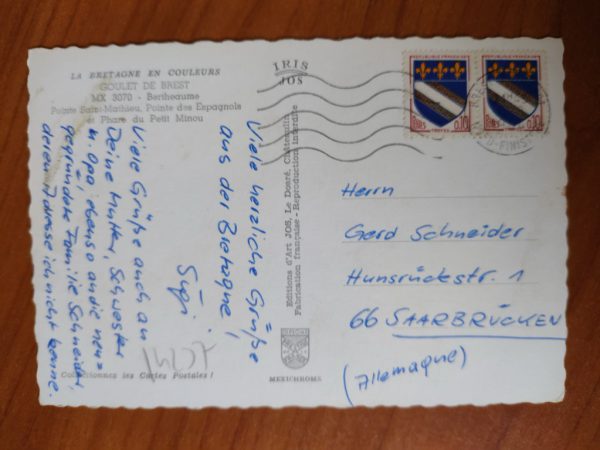 LA BRETAGNE EN COULEURS
GOULET DE BREST
MX 3070 - Bertheaume
Pointe Saint-Mathieu, Pointe des Espagnols
et Phare du Petit Minou
IRIS
JOS
Viele herzliche Grüße
aus der Bretagne!
Sigi
Viele Grüße auch an
Deine Mutter, Schwester
u. Opa, ebenso an die neu=
gegründete Familie Schneider,
deren Adresse ich nicht kenne.
Collectionnez les Cartes Postales !
Editions d'Art JOS, Le Doaré, Châteaulin
Fabrication française - Reproduction interdite
MEXICHROME
0,10
0,10
Herrn
Gerd Schneider
Hunsrückstr. 1
66 SAARBRÜCKEN
(Allemagne)